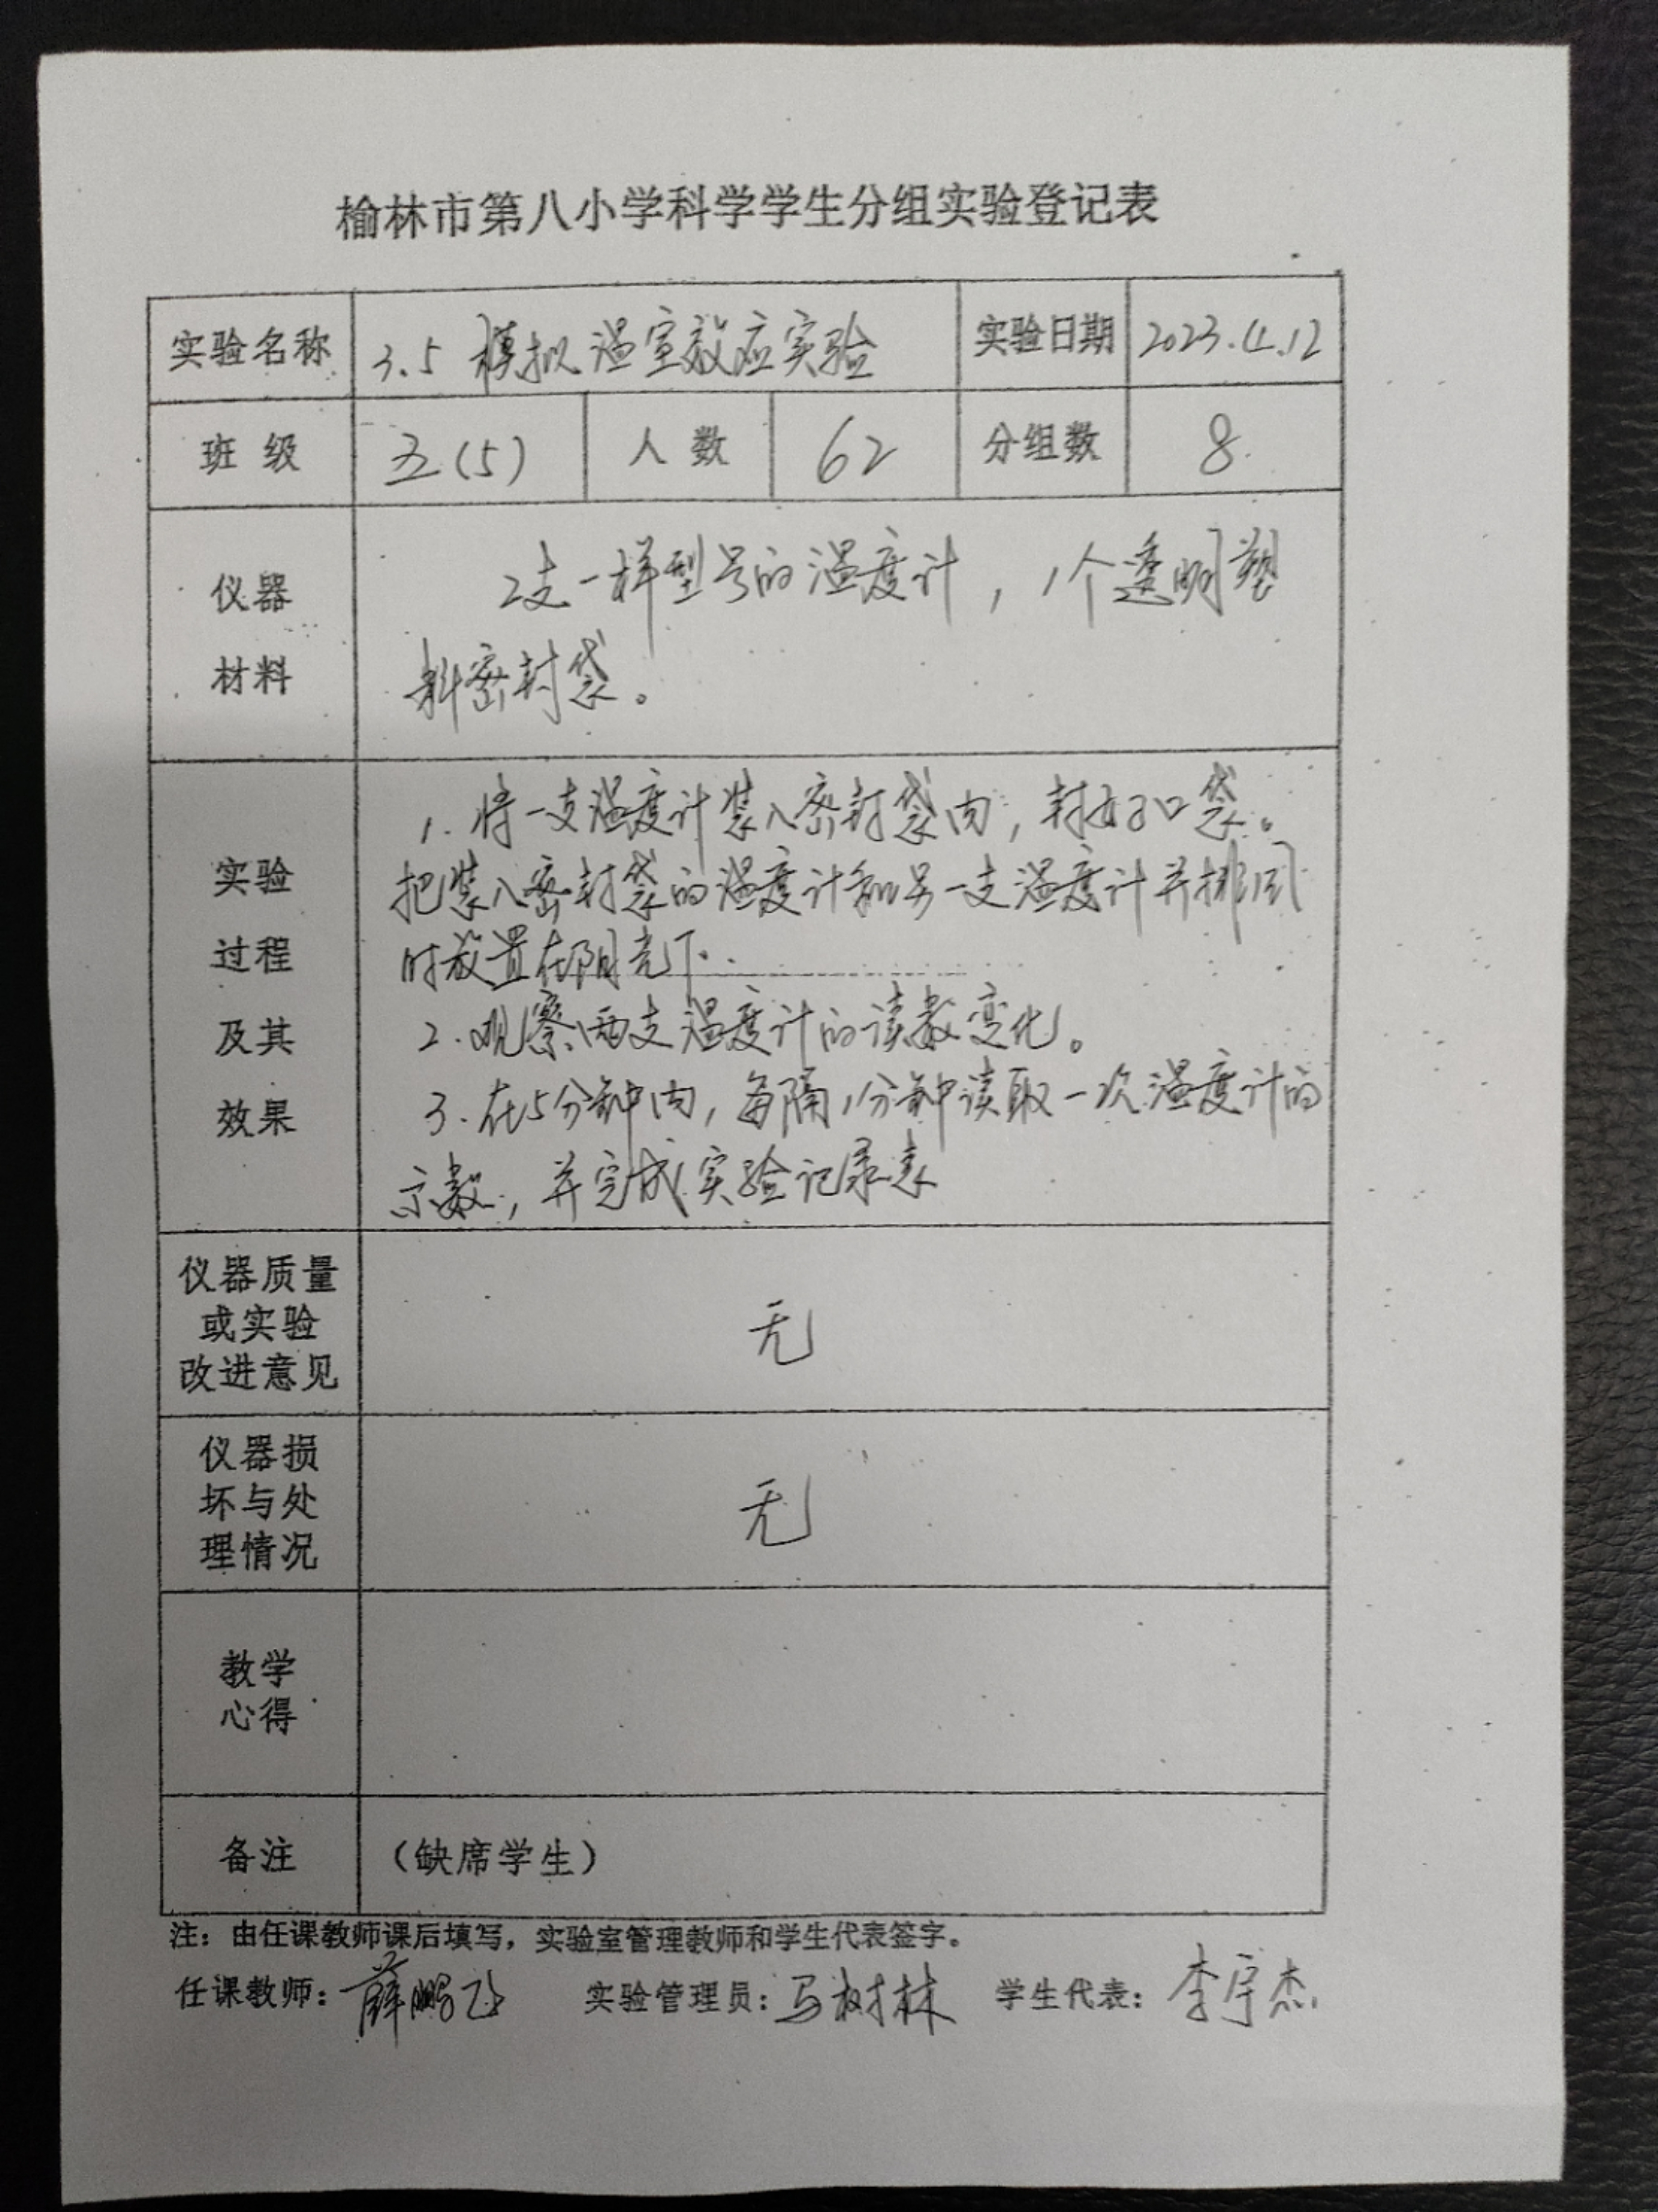 榆林市第八小学科学学生分组实验登记表
实验名称 3.5 模拟温室效应实验 实验日期 2023.4.12
班级 五(5) 人数 62 分组数 8
仪器
材料
2支一样型号的温度计，1个透明塑
料密封袋。
实验
过程
及其
效果
1. 将一支温度计装入密封袋内，封好口袋。
把装入密封袋的温度计和另一支温度计并排同
时放置在阳光下.
2. 观察两支温度计的读数变化。
3. 在5分钟内，每隔1分钟读取一次温度计的
示数，并完成实验记录表
仪器质量
或实验
改进意见
无
仪器损
坏与处
理情况
无
教学
心得
备注 （缺席学生）
注：由任课教师课后填写，实验室管理教师和学生代表签字。
任课教师：薛鹏飞 实验管理员：马树林 学生代表：李宇杰